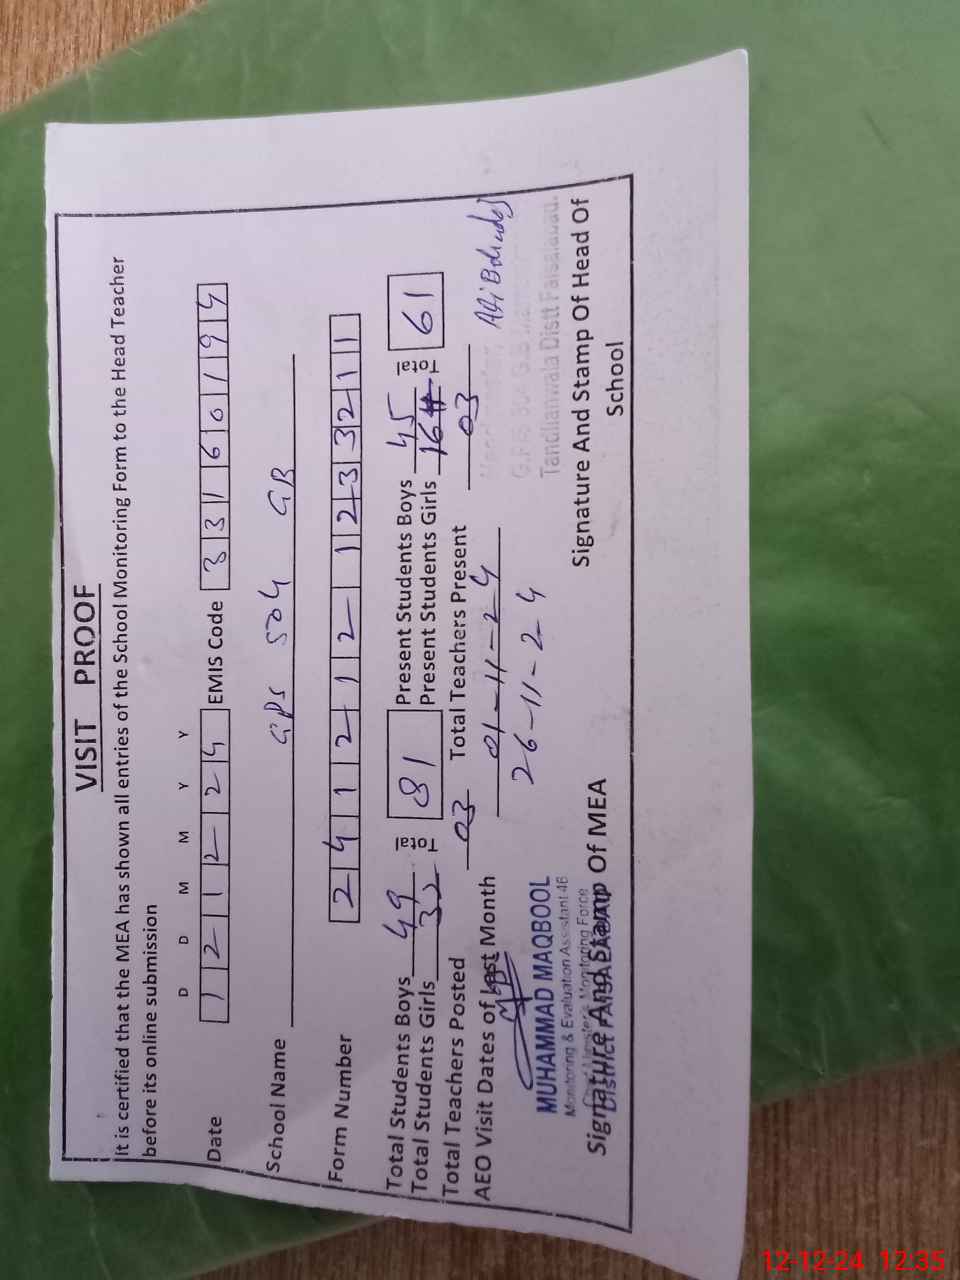 VISIT PROOF
It is certified that the MEA has shown all entries of the School Monitoring Form to the Head Teacher
before its online submission
D D M M Y Y
Date 1 2 1 2 2 4 EMIS Code 3 3 1 6 0 1 9 4
School Name GPS 504 GB
Form Number 2 4 1 2 1 2 1 2 3 3 2 1 1
Total Students Boys 49 Total 81 Present Students Boys 45 Total 61
Total Students Girls 32 Present Students Girls 16
Total Teachers Posted 03 Total Teachers Present 03
AEO Visit Dates of Last Month 01-11-24
26-11-24
MUHAMMAD MAQBOOL
Monitoring & Evaluation Assistant 46
Chief Minister's Monitoring Force
District FAISALABAD
Tandlianwala Distt Faisalabad.
Signature And Stamp Of MEA Signature And Stamp Of Head Of
School
12-12-24 12:35